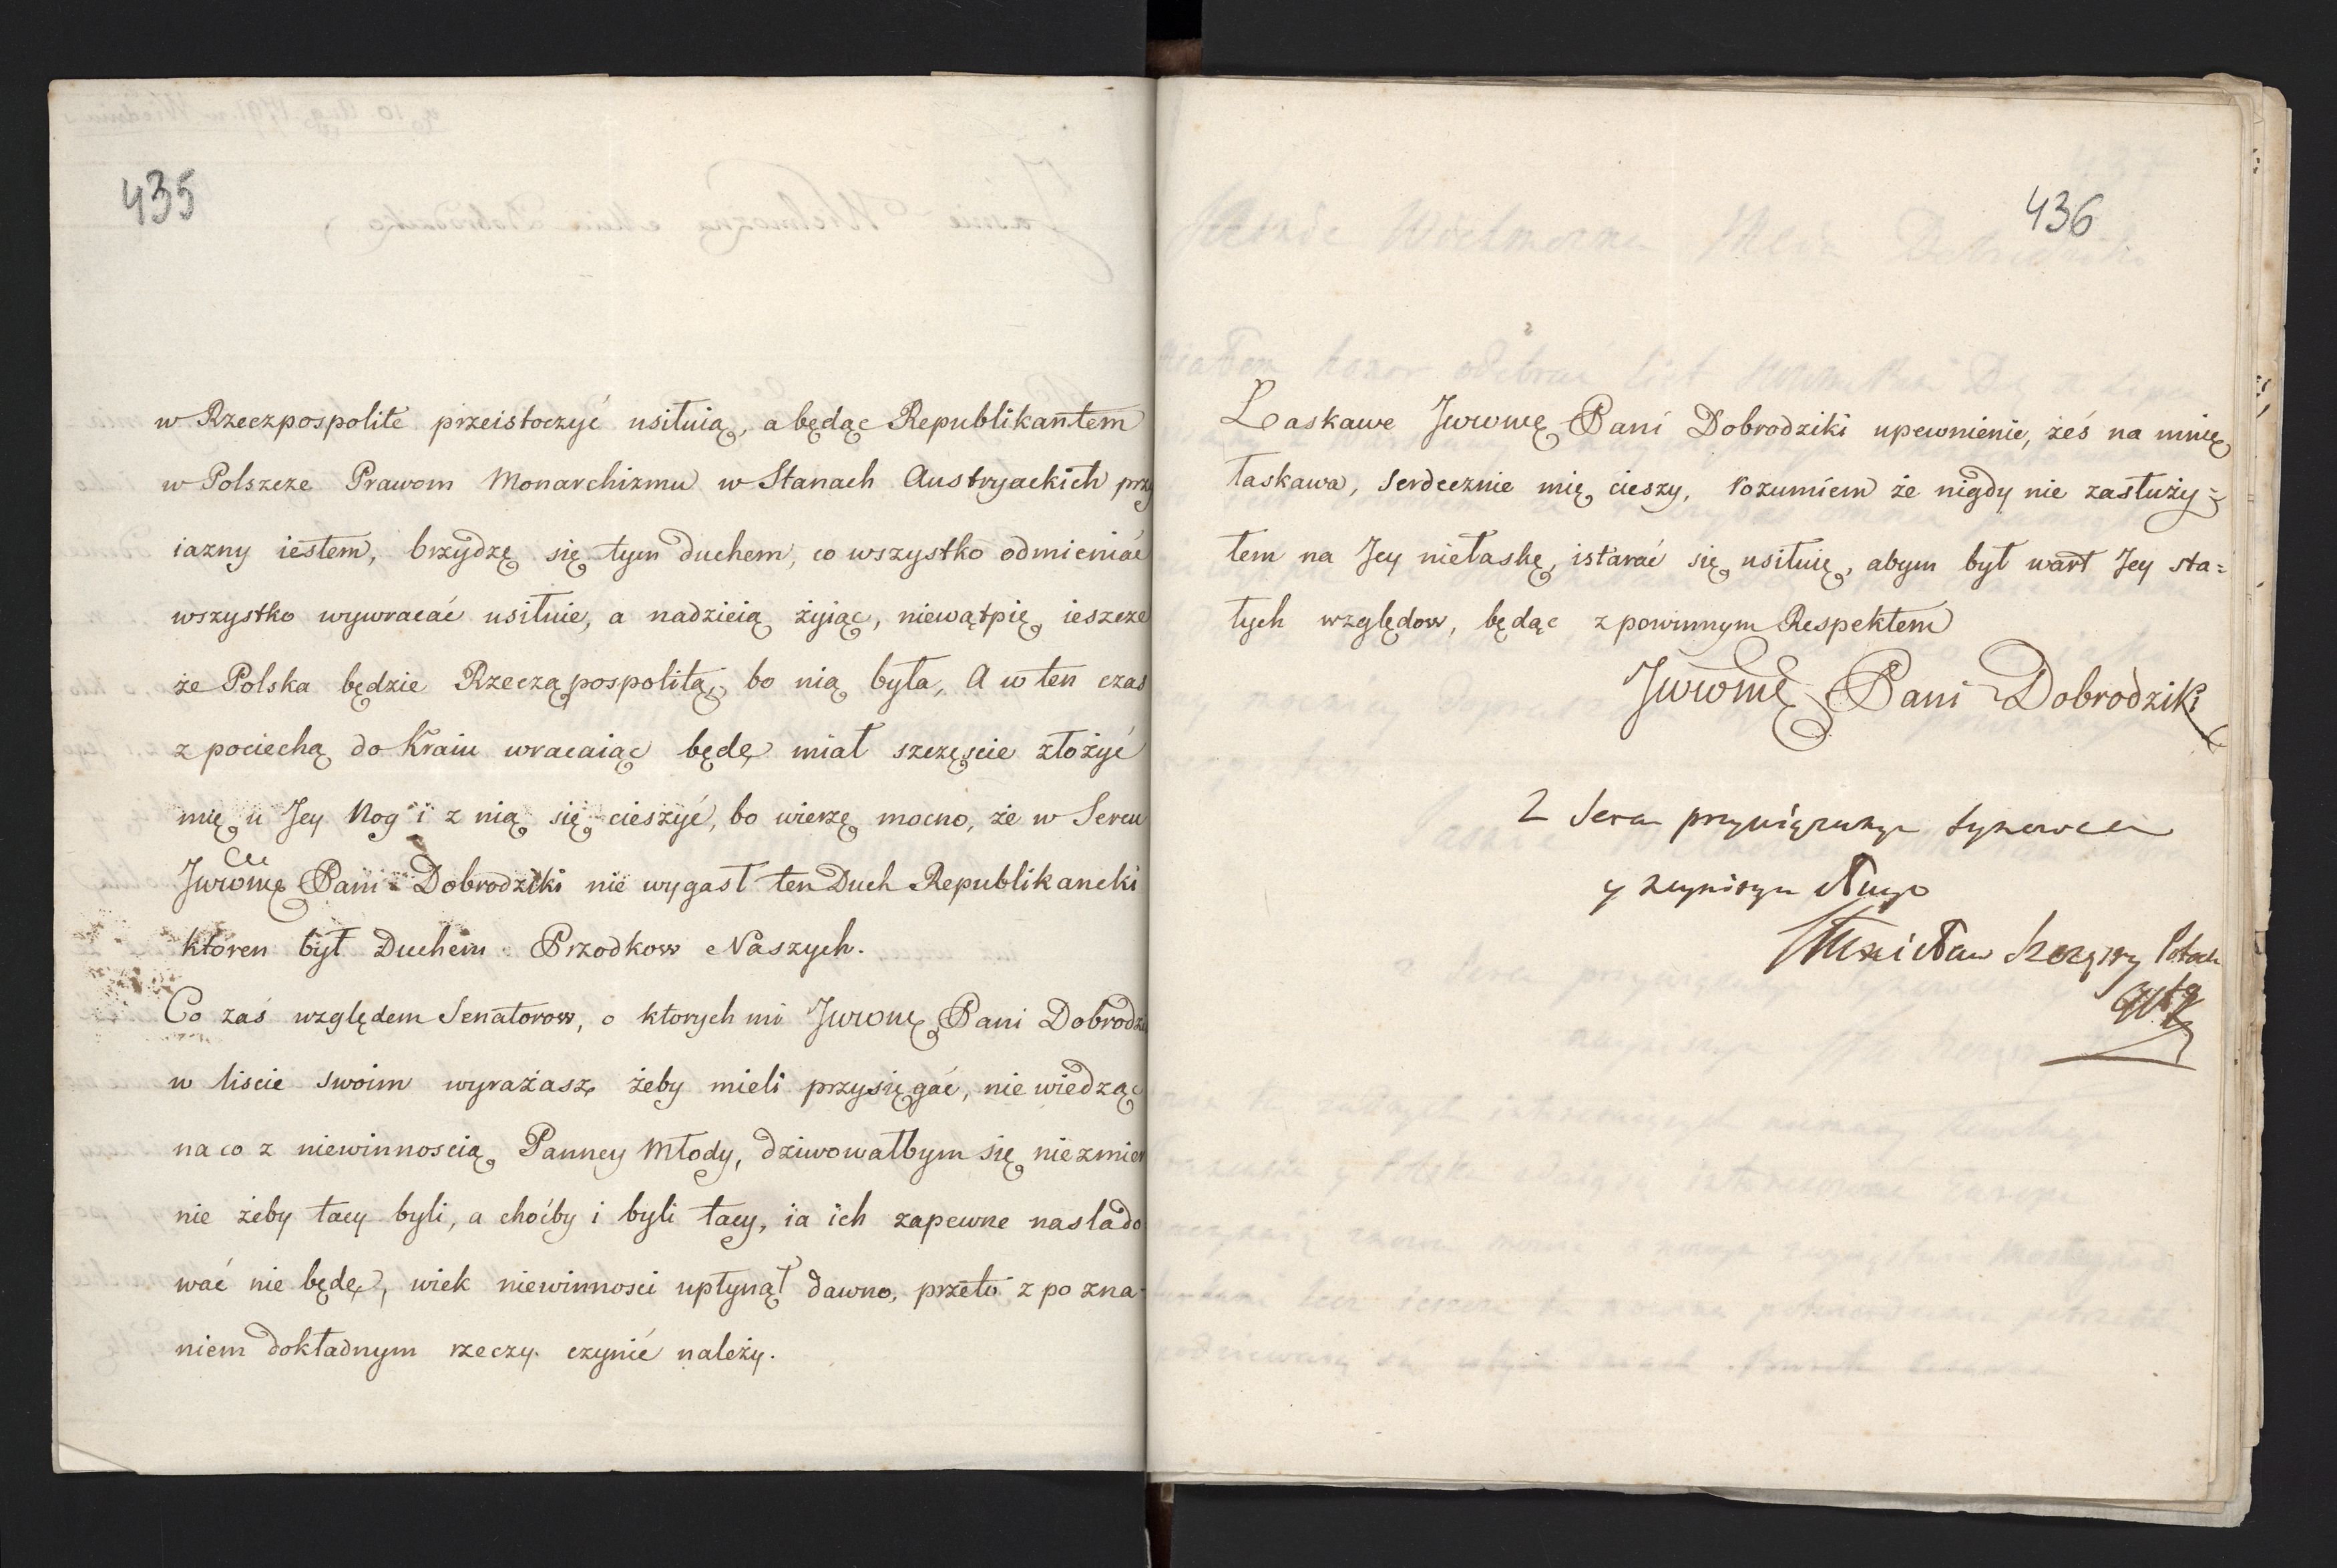 435
w Rzeczpospolite przeistoczyć usiłuią, a będąc Republikantem
w Polszcze Prawom Monarchizmu w Stanach Austryackich przy
iazny iestem, brzydzę się tym duchem, co wszystko odmieniać
wszystko wywracać usiłuie, a nadzieią żyiąc, niewątpię ieszcze
że Polska będzie Rzecząpospolitą, bo nią była, A w ten czas
z pociechą do Kraiu wracaiąc będę miał szczęscie złożyć
mię u Jey Nog i z nią się cieszyć, bo wierzę mocno, że w Sercu
Jwwmę Pani Dobrodziki nie wygasł ten Duch Republikancki
ktoren był Duchem Przodkow Naszych.
Co zaś względem Senatorow, o ktorych mi Jwwmę Pani Dobrodzi
w liscie swoim wyrażasz żeby mieli przysięgać, nie wiedząc
na co z niewinnoscią Panney Młody, dziwowałbym się niezmier
nie żeby tacy byli, a choćby i byli tacy, ia ich zapewne naslado
wać nie będę, wiek niewinnosci upłynął dawno, przeto z pozna-
niem dokładnym rzeczy czynić należy.
436
Łaskawe Jwwmę Pani Dobrodziki upewnienie, żéś na mnię
łaskawa, serdecznie mię cieszy, rozumiem że nigdy nie zasłuży=
łem na Jey niełaskę, i starać się usiłuię, abym był wart Jey sta=
łych względow, będąc z powinnym Respektem
Jwwmę Pani Dobrodziki
Z Serca przywiązanym
y sługą
Stanisław Szczęsny Potocki